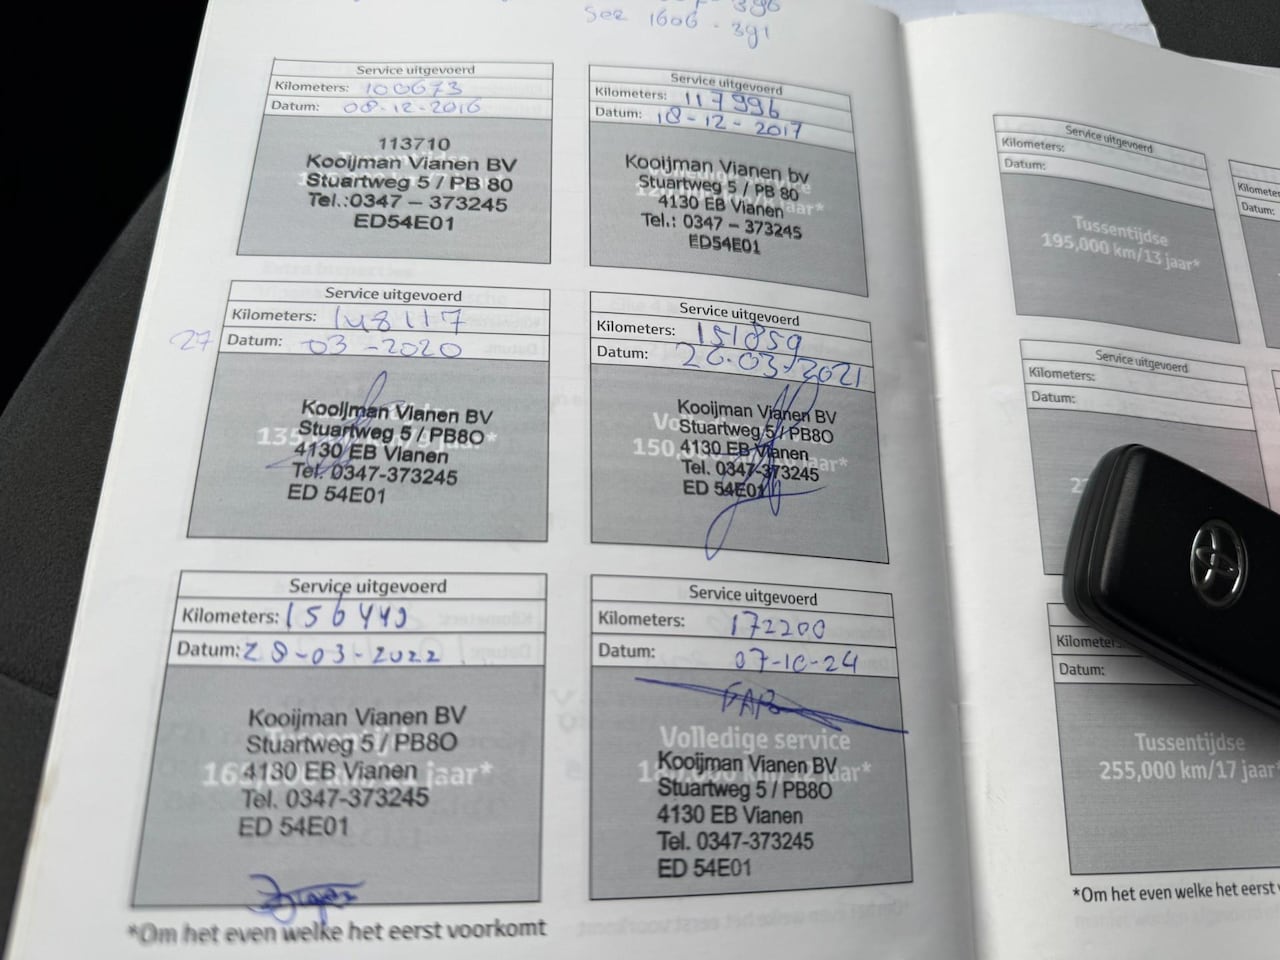 See 1606 - 391
Service uitgevoerd
Kilometers: 100673
Datum: 08-12-2016
113710
Kooijman Vianen BV
Stuartweg 5 / PB 80
Tel.:0347 – 373245
ED54E01
Service uitgevoerd
Kilometers: 117996
Datum: 18-12-2017
Kooijman Vianen bv
Stuartweg 5 / PB 80
4130 EB Vianen
Tel.: 0347 – 373245
ED54E01
Service uitgevoerd
Kilometers: 148117
27 Datum: 03-2020
Kooijman Vianen BV
Stuartweg 5 / PB8O
4130 EB Vianen
Tel. 0347-373245
ED 54E01
Service uitgevoerd
Kilometers: 151859
Datum: 26-03-2021
Kooijman Vianen BV
Stuartweg 5 / PB8O
4130 EB Vianen
Tel. 0347-373245
ED 54E01
Service uitgevoerd
Kilometers: 156449
Datum: 28-03-2022
Kooijman Vianen BV
Stuartweg 5 / PB8O
4130 EB Vianen
Tel. 0347-373245
ED 54E01
Service uitgevoerd
Kilometers: 172200
Datum: 07-10-24
Volledige service
Kooijman Vianen BV
Stuartweg 5 / PB8O
4130 EB Vianen
Tel. 0347-373245
ED 54E01
*Om het even welke het eerst voorkomt
Service uitgevoerd
Kilometers:
Datum:
Tussentijdse
195,000 km/13 jaar*
Service uitgevoerd
Kilometers:
Datum:
Kilometers:
Datum:
Tussentijdse
255,000 km/17 jaar*
*Om het even welke het eerst
Kilometers:
Datum: